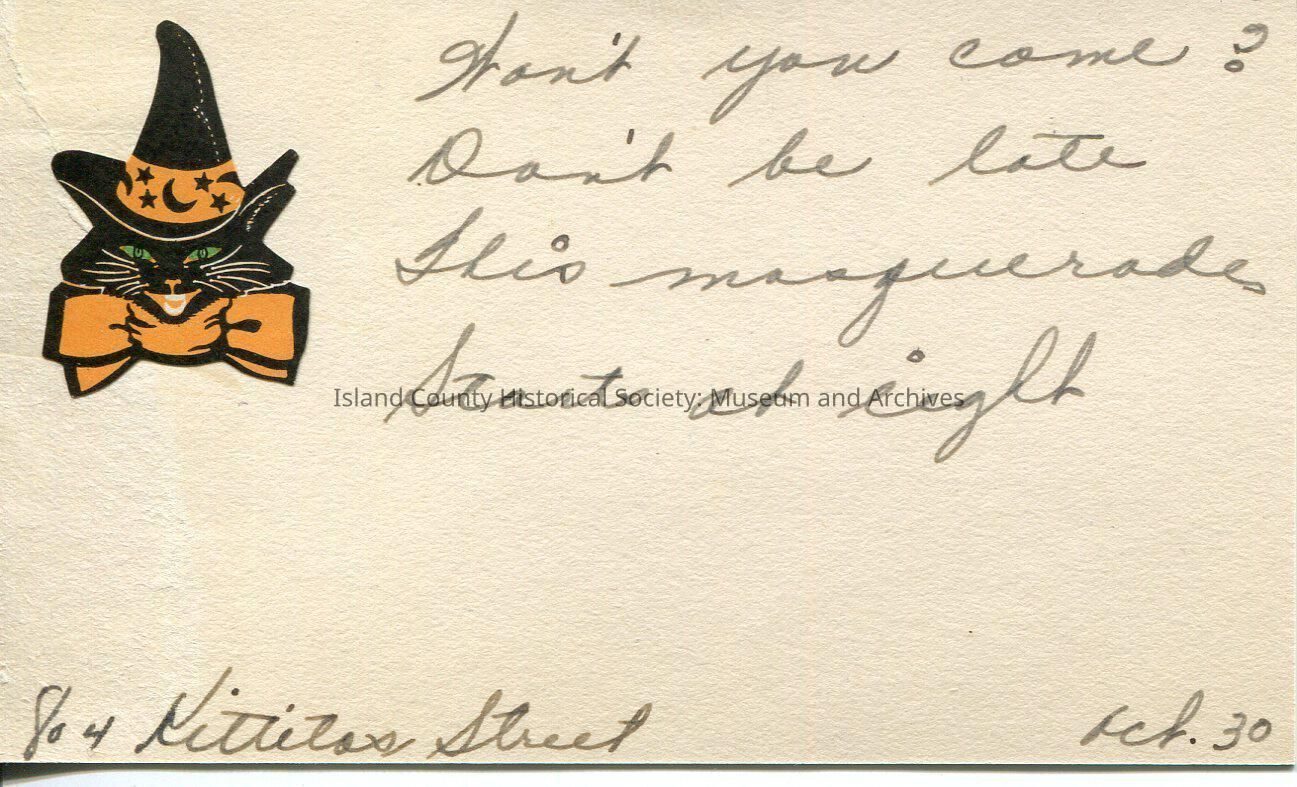 Won't you come?
Don't be late
This masquerade
Starts at eight
Island County Historical Society: Museum and Archives
804 Kittitas Street
Oct. 30